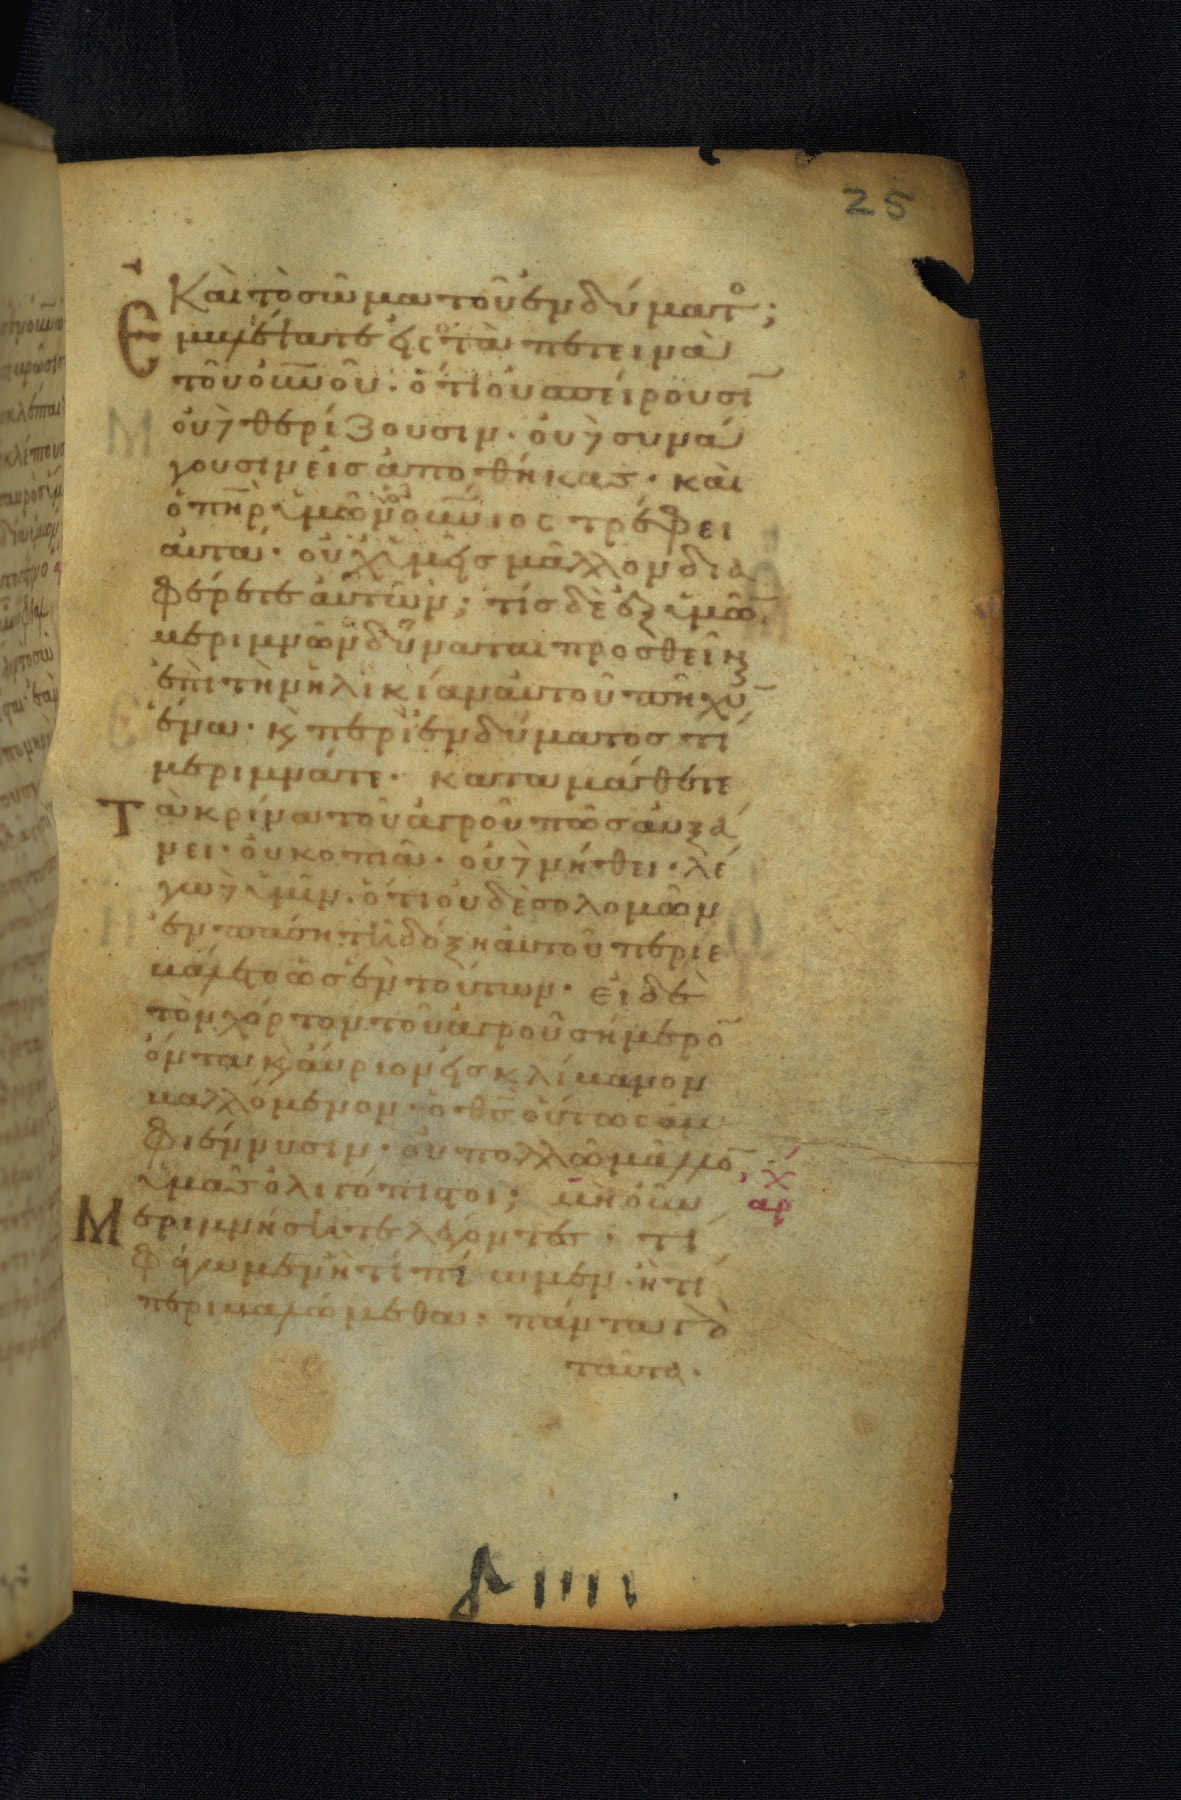 25
καὶ τὸ σῶμα τοῦ ἐνδύματ̊;
Ἐμβλέψατε εἰς τὰ πετεινὰ
τοῦ οὐ̅νοῦ. ὅτι οὐ σπείρουσι̅
οὐδὲ θερίζουσιν. οὐδὲ συνά
γουσιν εἰς ἀποθήκας. καὶ
ὁ π̅η̅ρ ὑμῶν ὁ οὐ̅νιος τρέφει
αὐτά. οὐχ ὑμεῖς μᾶλλον δια
φέρετε αὐτῶν; τίς δὲ ἐξ ὑμῶ̅
μεριμνῶν δύναται προσθεῖναι
ἐπὶ τὴν ἡλικίαν αὐτοῦ πῆχυ̅
ἕνα. κ περὶ ἐνδύματος τί
μεριμνᾶτε. καταμάθετε
Τὰ κρίνα τοῦ ἀγροῦ πῶς αὐξά
νει. οὐ κοπιᾶ. οὐδὲ νήθει. λέ
γω δὲ ὑμῖν. ὅτι οὐδὲ σολομῶν
ἐν πάσῃ τῇ δόξῃ αὐτοῦ περιε
βάλετο ὡς ἓν τούτων. εἰ δὲ
τὸν χόρτον τοῦ ἀγροῦ σήμερο̅
ὄντα κ αὔριον εἰς κλίβανον
βαλλόμενον. ὁ θ̅ς̅ οὕτως ἀμ
φιέννυσιν. οὐ πολλῶ μᾶλλο̅
ὑμᾶς ὀλιγόπιστοι; μὴ οὖν
Μεριμνήσητε λέγοντες. τί
φάγωμεν ἢ τί πίωμεν. ἢ τί
περιβαλώμεθα. πάντα γὰρ
ταῦτα.
ἀρχ